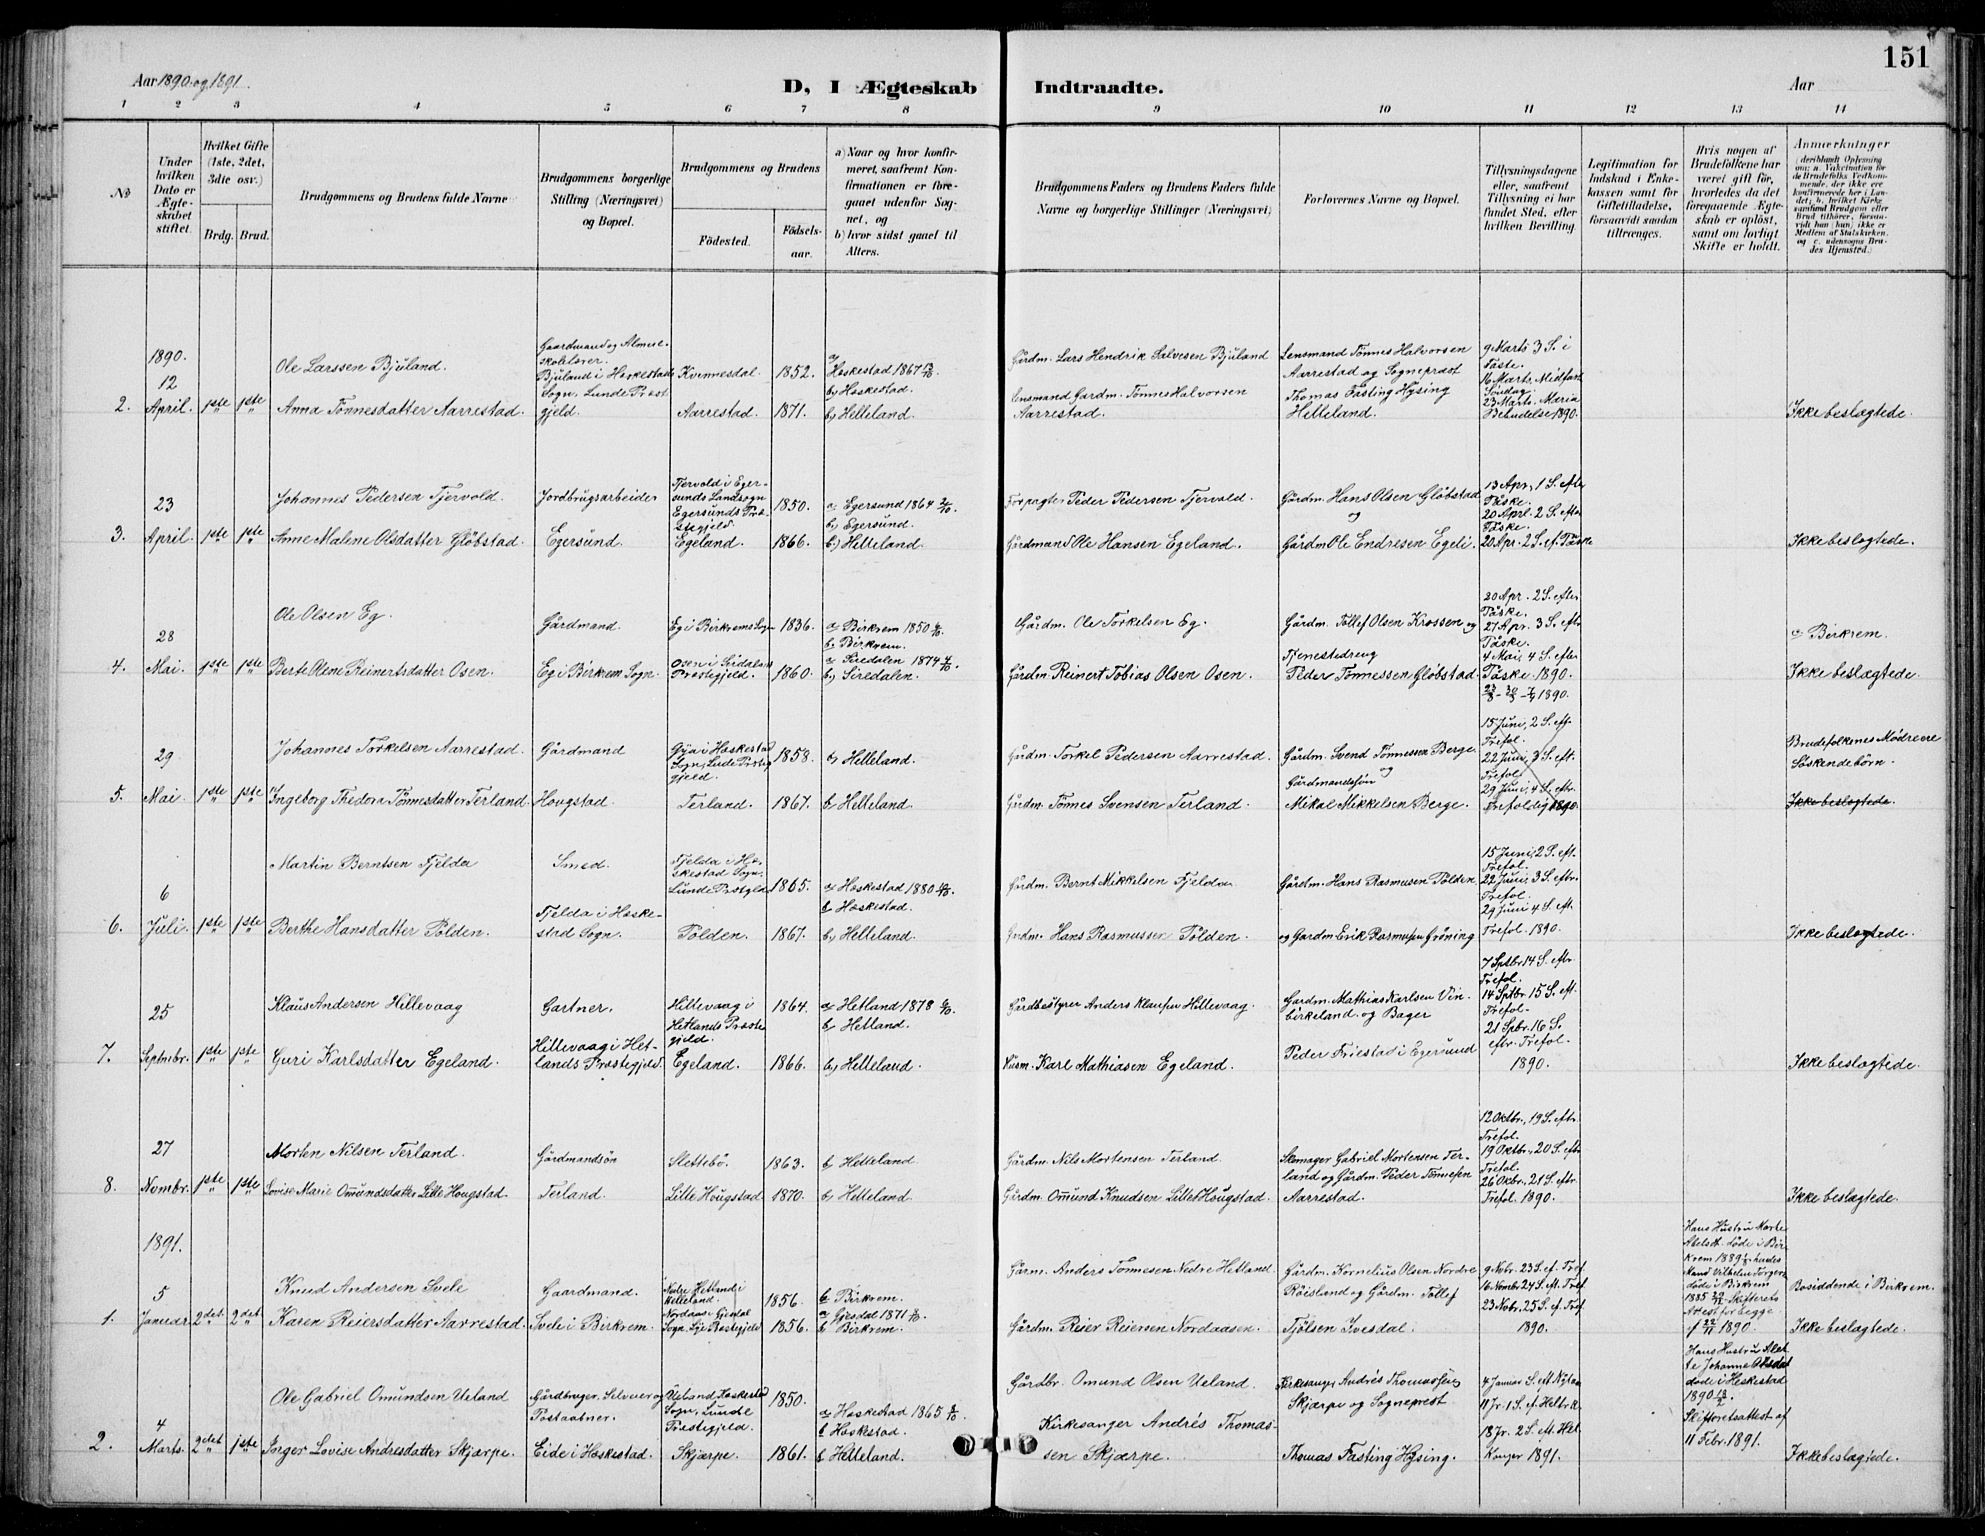 151
Aar 1890 og 1891.
D, I Ægteskab Indtraadte.
Aar
1 2 3 4 5 6 7 8 9 10 11 12 13 14
No
Under hvilken Dato er Ægteskabet stiftet.
Hvilket Gifte (1ste, 2det, 3die osv.)
Brdg. Brud.
Brudgommens og Brudens fulde Navne
Brudgommens borgerlige Stilling (Næringsvei) og Bopæl.
Brudgommens og Brudens
Födested.
Födselsaar.
a) Naar og hvor konfirmeret, saafremt Konfirmationen er foregaaet udenfor Sognet, og
b) hvor sidst gaaet til Alters.
Brudgommens Faders og Brudens Faders fulde Navne og borgerlige Stillinger (Næringsvei)
Forlovernes Navne og Bopæl.
Tillysningsdagene eller, saafremt Tillysning ei har fundet Sted, efter hvilken Bevilling.
Legitimation for Indskud i Enkekassen samt for Giftetilladelse, forsaavidt saadan tiltrænges.
Hvis nogen af Brudefolkene har været gift för, hvorledes da det foregaaende Ægteskab er oplöst, samt om lovligt Skifte er holdt.
Anmærkninger
1890.
2. 12 April. 1ste 1ste
Ole Larssen Bjuland.
Anna Tönnesdatter Aarrestad.
Gaardmand og Almueskolelærer.
Bjuland i Heskestads Sogn, Lunde Præstegjeld.
Kvinnesdal 1852.
Aarrestad. 1871.
a) Heskestad 1867
b) Heskestad.
b) Helleland.
Gårdm. Lars Hendrik Salvesen Bjuland
Lensmand Gårdm. Tönnes Halvorsen Aarrestad.
Lensmand Tönnes Halvorsen Aarrestad og Sognepræst Thomas Fasting Hysing Helleland.
9 Marts 3 S. i Faste.
16 Marts. Midfaste Söndag.
23 Marts. Maria Bebudelse 1890.
Ikke beslægtede.
3. 23 April. 1ste 1ste
Johannes Pedersen Tjervold.
Anne Malene Olsdatter Glöbstad.
Jordbrugsarbeider
Egersund.
Tjervold i Egersunds Landsogn Egersunds Præstegjeld. 1850.
Egeland. 1866.
a) Egersund 1864
b) Egersund.
b) Helleland.
Forpagter Peder Pedersen Tjervold.
Gårdmand Ole Hansen Egeland.
Gårdm. Hans Olsen Glöbstad
og
Gårdm Ole Endresen Egeli.
13 Apr. 1 S. efter Påske.
20 April. 2 S. efter Påske.
20 Apr. 2 S. ef. Påske
Ikke beslægtede.
4. 28 Mai. 1ste 1ste
Ole Olsen Eg.
Berte Oline Reinertsdatter Osen.
Gårdmand.
Eg i Birkrem Sogn.
Eg i Birkrems Sogn 1836.
Osen i Siredalens Præstegjeld. 1860.
a) Birkrem 1850
b) Birkrem.
a) Siredalen 1874
b) Siredalen.
Gårdm. Ole Torkelsen Eg.
Gårdm. Reinert Tobias Olsen Osen.
Gårdm. Tollef Olsen Krossen og
Tjenestedreng
Peder Tönnessen Glöbstad.
20 Apr. 2 S. efter Påske.
27 Apr. 3 S. eft. Påske.
4 Mai, 4 S. efter Påske. 1890.
a) Birkrem.
Ikke beslægtede.
5. 29 Mai. 1ste 1ste
Johannes Torkelsen Aarrestad.
Ingeborg Thedora Tönnesdatter Terland.
Gårdmand
Hougstad.
Gya i Heskestad Sogn, Lunde Præstegjeld. 1858.
Terland. 1867.
b) Helleland.
b Helleland.
Gårdm. Torkel Pedersen Aarrestad.
Gårdm. Tönnes Svensen Terland.
Gårdm. Svend Tönnessen Berge
og
Gårdmandssön
Mikal Mikkelsen Berge.
15 Juni, 2 S. eft. Trefol.
22 Juni, 3 S. eft. Trefol.
29 Juni, 4 S. eft. Trefoldig. 1890.
Brudefolkenes Mödre ere Söskendebörn.
Ikke beslægtede.
6. 6 Juli. 1ste 1ste
Martin Berntsen Fjelda
Berthe Hansdatter Pölden.
Smed.
Fjelda i Heskestad Sogn.
Fjelda i Heskestad Sogn. Lunde Præstgjeld 1865.
Pölden. 1867.
a) Heskestad 1880
b Heskestad.
b) Helleland.
Gårdm. Bernt Mikkelsen Fjelda.
Gårdm. Hans Rasmussen Pölden.
Gårdm. Hans Rasmusen Pölden
og Gardm Erik Rasmusen Gröning
15 Juni, 2 S. eft. Trefol.
22 Juni, 3 S. eftr. Trefol.
29 Juni 4 S. eft. Trefol. 1890.
Ikke beslægtede.
7. 25 Septmbr. 1ste 1ste
Klaus Andersen Hillevaag
Guri Karlsdatter Egeland.
Gartner.
Hillevaag i Hetlands Præstegjeld.
Hillevaag i Hetlands Præstegjeld. 1864.
Egeland. 1866.
a) Hetland 1878
b) Hetland.
b) Helleland.
Gårdbestyrer Anders Klausen Hillevaag.
Husm. Karl Mathiasen Egeland.
Gardm. Mathias Karlsen Vinbirkeland. og Bager
Peder Friestad i Egersund
7 Sptbr. 14 S. eftr. Trefol.
14 Sptbr. 15 S. eft. Trefol.
21 Spbr. 16 S. eftr. Trefol.
1890.
Ikke beslægtede.
8. 27 Novmbr. 1ste 1ste
Morten Nilsen Terland.
Lovise Marie Omundsdatter Lille Hougstad
Gårdmandsön
Terland.
Slettebö. 1863.
Lille Hougstad 1870.
b Helleland
b) Helleland.
Gårdm. Nils Mortensen Terland.
Gårdm. Omund Knudsen Lille Hougstad.
Skomager Gabriel Mortensen Terland og Gårdm. Peder Tönnesen Aarrestad.
12 Oktbr., 19 S. eftr. Trefol.
19 Oktbr., 20 S. eft. Trefol.
26 Okbr. 21 S. eftr. Trefol. 1890.
Ikke beslægtede.
1891.
1. 5 Januar. 2det 2det
Knud Andersen Svele
Karen Reiersdatter Aarrestad.
Gaardmand.
Svele i Birkrem.
Nedre Hetland i Helleland. 1856.
Nordaas i Gjesdal Sogn. Lye Præstegjeld 1856.
b Birkrem.
a Gjesdal 1871
b Birkrem.
Gårm. Anders Tönnesen Nedre Hetland.
Gårdm. Reier Reiersen Nordaasen.
Gårdm. Kornelius Olsen Nordre Röisland og Gårdm. Tollef Tjölsen Ivesdal.
9 Nobr. 23 S. ef. Tref.
16 Nombr. 24 S. ft. Tref
23 Nobr. 25 S. ef. Tref
1890.
Hans Hustru Marte döde i Birkrem 1889 hendes Mand Vilhelm döde i Birkrem 1885 Skifterets Attest for begge af 22/11 1890.
Bosiddende i Birkrem.
Ikke beslægtede.
2. 4 Marts. 2det 1ste
Ole Gabriel Omundsen Ueland
Inger Lovise Andresdatter Skjærpe.
Gårdbruger. Selveier og Postaabner.
Eide i Heskestad.
Ueland Heskestad Sogn, Lunde Præstegjeld. 1850.
Skjærpe. 1861.
a) Heskestad 1865
b Heskestad.
b Helleland.
Gårdbr. Omund Olsen Ueland.
Kirkesanger Andrés Thomassen Skjærpe.
Kirkesanger Andrés Thomassen Skjærpe og Sogneprest
Thomas Fasting Hysing.
4 Januar S. eft. Nytaar
11 Jr. 1 S. ef. Hel
18 Jr. 2 S. eft. Hel. Konger 1891.
Hans Hustru Johanne döde i Heskestad 1890
Skifteretsattest af 11 Febr. 1891.
Ikke beslægtede.